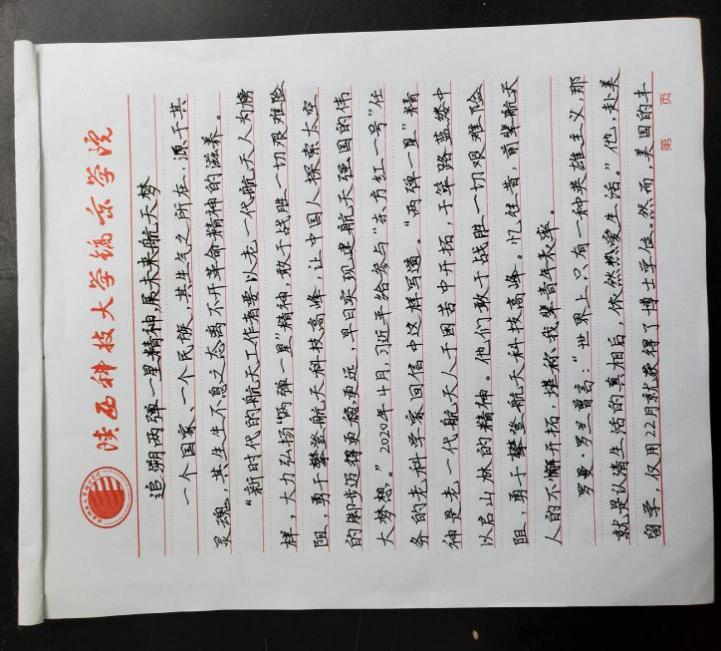 陕西科技大学镐京学院
追朔两弹一星精神,展未来航天梦
一个国家、一个民族,其生气之所在,源于其
灵魂,其生生不息之态离不开革命精神的滋养。
“新时代的航天工作者要以老一代航天人为榜
样,大力弘扬“两弹一星”精神,敢于战胜一切艰难险
阻,勇于攀登航天科技高峰,让中国人探索太空
的脚步迈得更稳更远,早日实现建航天强国的伟
大梦想。”2020年4月,习近平给参与“东方红一号”任
务的老科学家回信中这样写道。“两弹一星”精
神是老一代航天人于困苦中开拓,于筚路蓝缕中
以启山林的精神。他们敢于战胜一切艰难险
阻,勇于攀登航天科技高峰。忆往昔,前辈航天
人的不懈开拓,堪称我辈青年表率。
罗曼·罗兰曾言:“世界上只有一种英雄主义,那
就是认清生活的真相后,依然热爱生活。”他,赴美
留学,仅用22月就获得了博士学位。然而,美国的丰
第 页